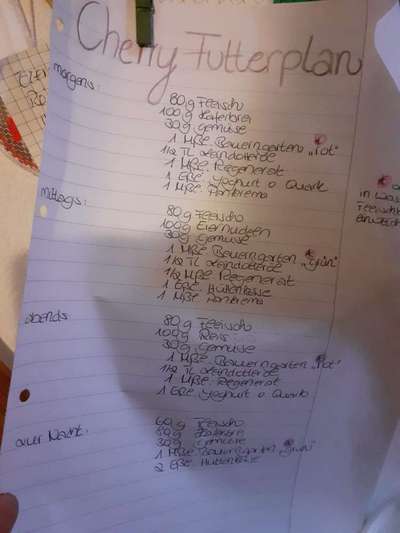 Cherry Futterplan
morgens:
80g Fleisch
100g Haferbrei
30g Gemüse
1 MßL Bauerngarten "rot"
1/2 TL Leindotteröl
1 MßL Regenerat
1 EßL Joghurt o Quark
1 MßL
mittags:
80g Fleisch
100g Eiernudeln
30g Gemüse
1 MßL Bauerngarten "grün"
1/2 TL Leindotteröl
1/2 MßL Regenerat
1 EßL Hüttenkäse
1 MßL
abends
80g Fleisch
100g Reis
30g Gemüse
1 MßL Bauerngarten "rot"
1/2 TL Leindotteröl
1 MßL Regenerat
1 EßL Joghurt o Quark
zur Nacht:
60g Fleisch
50g Haferbrei
30g Gemüse
1 MßL Bauerngarten "grün"
2 EßL Hüttenkäse
in was
Fleisch